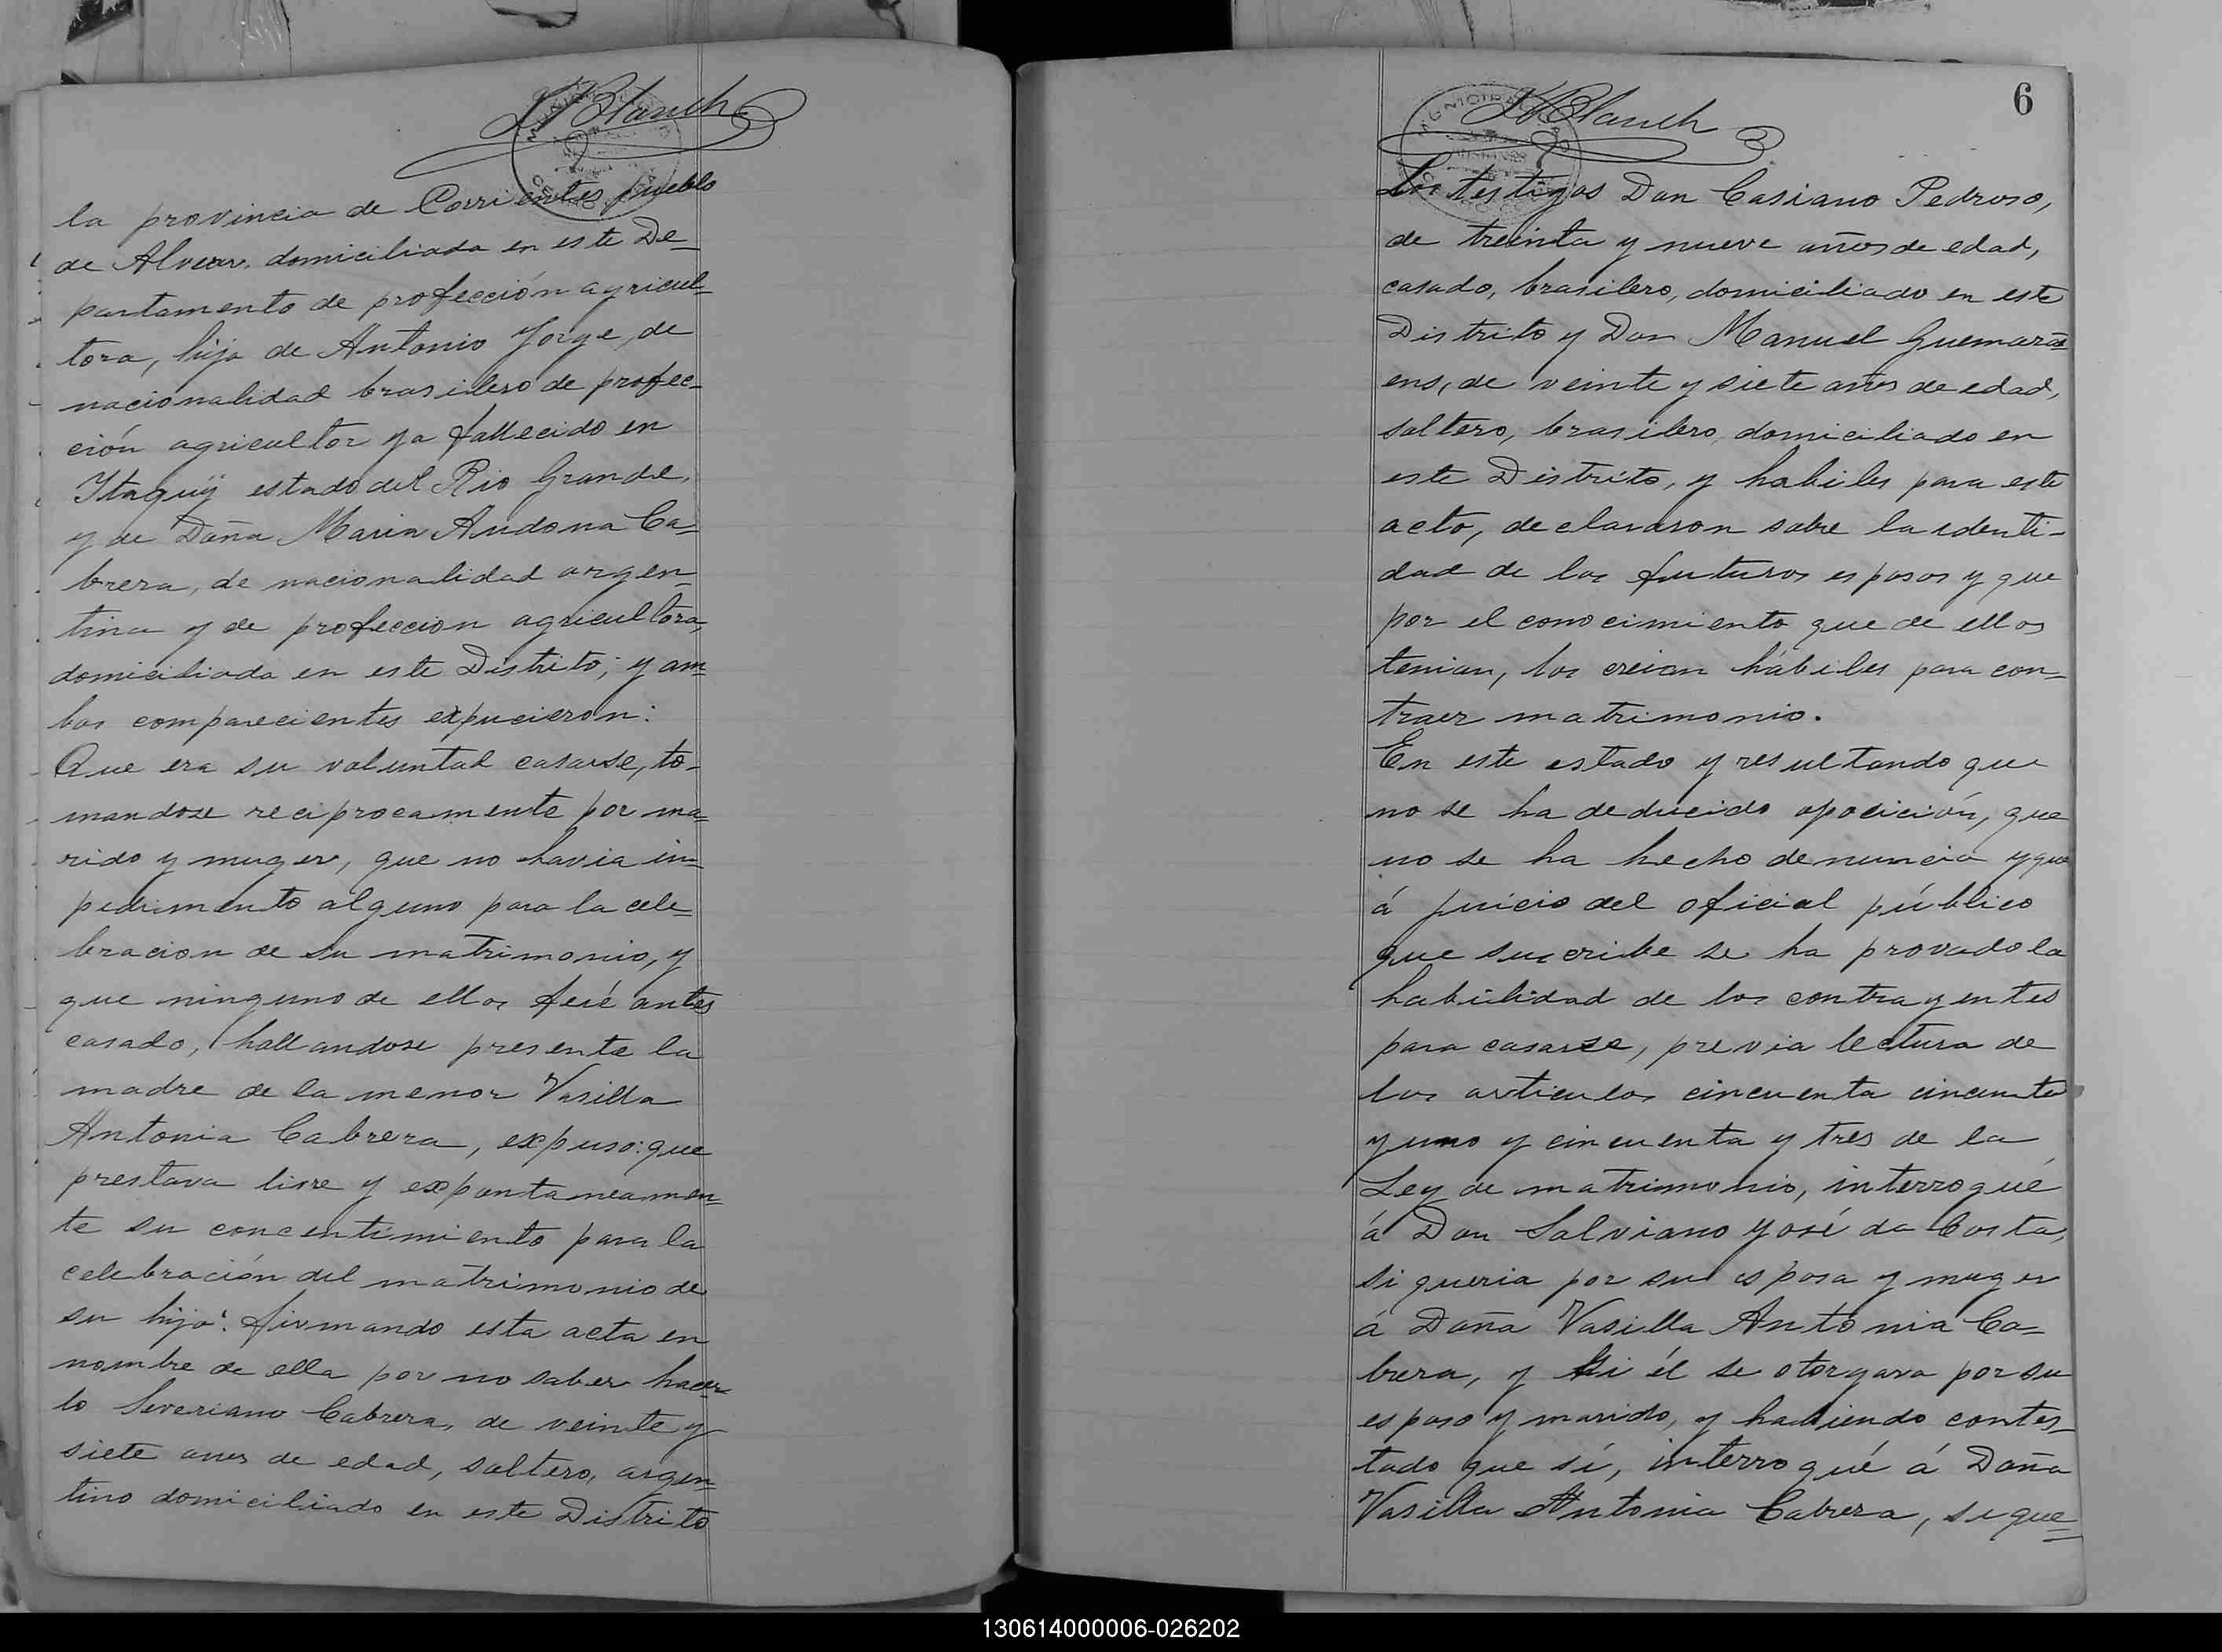 Blanch
la provincia de Corrientes pueblo
de Alvear domiciliada en este De-
partamento de profección agricul-
tora, hija de Antonio Jorge, de
nacionalidad brasilero de profec-
ción agricultor ya fallecido en
Itaquÿ estado del Rio Grande,
y de Doña Maria Andona Ca-
brera, de nacionalidad argen-
tina y de profeccion agricultora,
domiciliada en este Distrito; y am-
bos comparecientes expucieron:
Que era su voluntad casarse, to-
mandose reciprocamente por ma-
rido y muger, que no havia im-
pedimento alguno para la cele-
bracion de su matrimonio, y
que ninguno de ellos fué antes
casado, hallandose presente la
madre de la menor Vasilla
Antonia Cabrera, expuso: que
prestava livre y expontaneamen-
te su concentimiento para la
celebración del matrimonio de
su hija: firmando esta acta en
nombre de ella por no saber hacer-
lo Severiano Cabrera, de veinte y
siete anos de edad, soltero, argen-
tino domiciliado en este Distrito
6
Blanch
Los testigos Don Casiano Pedroso,
de treinta y nueve años de edad,
casado, brasilero, domiciliado en este
Distrito y Don Manuel Guemarã-
ens, de veinte y siete años de edad,
soltero, brasilero, domiciliado en
este Distrito, y habiles para este
acto, declararon sobre la identi-
dad de los futuros esposos y que
por el conocimiento que de ellos
tenian, los creian hábiles para con-
traer matrimonio.
En este estado y resultando que
no se ha deducido opocición, que
no se ha hecho denuncia y que
á juicio del oficial público
que suscribe se ha provado la
habilidad de los contrayentes
para casarse, previa lectura de
los articulos cincuenta cincuenta
y uno y cincuenta y tres de la
Ley de matrimonio, interrogué
á Don Salviano José da Costa,
si queria por su esposa y muger
á Doña Vasilla Antonia Ca-
brera, y si él se otorgava por su
esposo y marido, y habiendo contes-
tado que sí, interrogué á Doña
Vasilla Antonia Cabrera, si que-
130614000006-026202